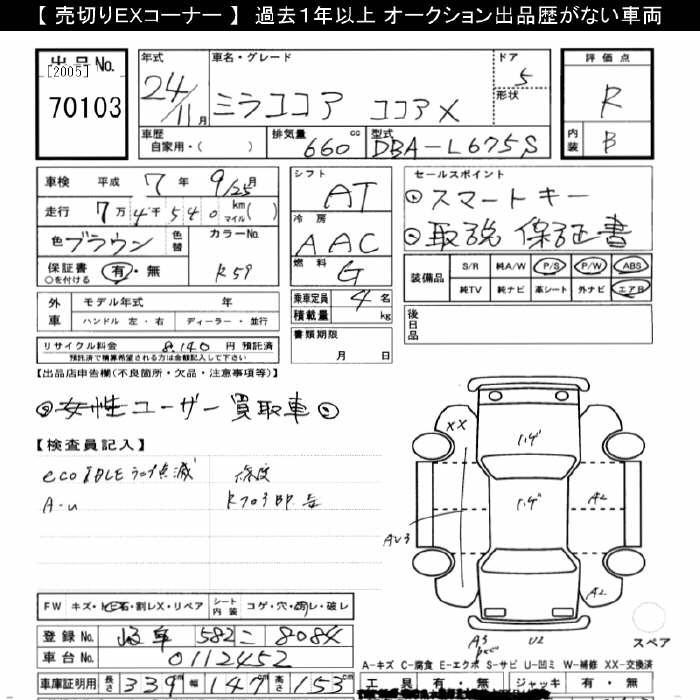 【 売切りEXコーナー 】 過去1年以上 オークション出品歴がない車両
出品No. [2005] 70103
年式 24/11月
車名・グレード ミラココア ココアX
ドア 5
形状
評価点 R
内装 B
車歴 自家用・( )
排気量 660 cc
型式 DBA-L675S
車検 平成 7年 9/25月
走行 7万4千540 km マイル( )
色 ブラウン 色替
カラーNo. R59
保証書 ○を付ける 有・無
シフト AT
冷房 AAC
燃料 G
乗車定員 4名
積載量 kg
書類期限 月 日
セールスポイント
スマートキー
取説 保証書
装備品 S/R 純A/W P/S P/W ABS
純TV 純ナビ 革シート 外ナビ エアB
後日品
外車 モデル年式 年
ハンドル 左・右 ディーラー・並行
リサイクル料金 8,140円 預託済
預託済で精算希望される方は金額記入して下さい
【出品店申告欄(不良箇所・欠品・注意事項等)】
女性ユーザー買取車
【検査員記入】
eco IDLE ランプ点滅 修復
A-u
XX
1.4
1.4
A2
A2
AU3
A3
U2
FW キズ・ヒビ・石・割レX・リペア シート内装 コゲ・穴・切レ・破レ
登録No. 岐阜 582 こ 8084
車台No. 0112452
車庫証明用 長さ 339cm 幅 147cm 高さ 153cm
スペア
A-キズ C-腐食 E-エクボ S-サビ U-凹ミ W-補修 XX-交換済
工具 有・無 ジャッキ 有・無